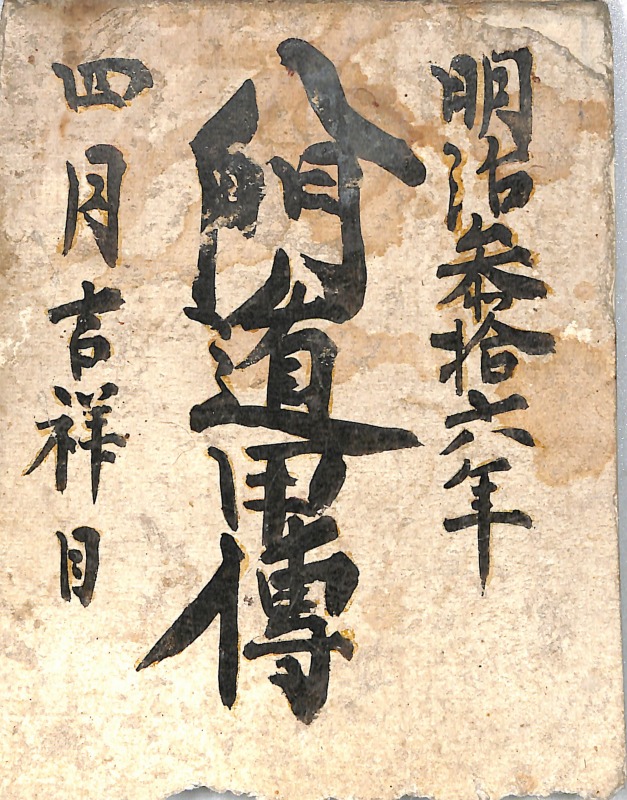 明治参拾六年
道用傳
四月吉祥日